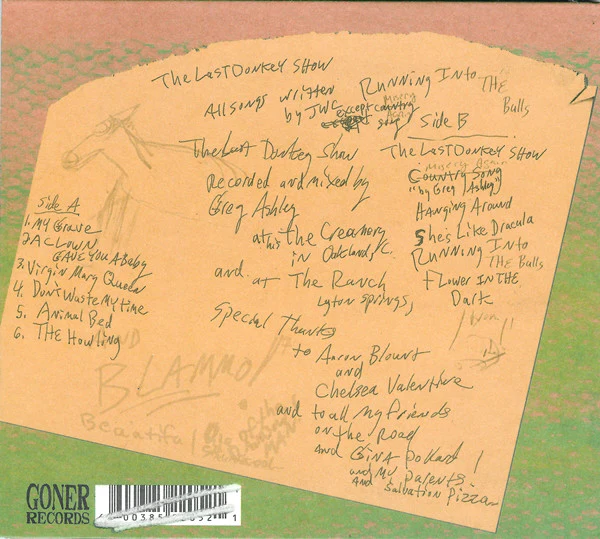 The Last Donkey Show
All songs written
by JWC except country
song
Merry
Again
Running Into THE
Bulls
The Last Donkey Show
Recorded and mixed by
Greg Ashley
at his The Creamery
in Oakland, C.
and at The Ranch
Lyton Springs,
Special Thanks
to Aaron Blount
and
Chelsea Valentine
and to all my friends
on the Road
and Gina Pollard!
and my parents.
and Salvation Pizza
Side A
1. My Grave
2. A Clown
Gave You A Baby
3. Virgin Mary Queen
4. Don't Waste My Time
5. Animal Bed
6. The Howling
Side B
The Last Donkey Show
"Marry Again"
Country Song
"by Greg Ashley"
Hanging Around
She's Like Dracula
Running Into
The Bulls
Flower IN THE
Dark
BLAMMO!
Beautiful
GONER
RECORDS